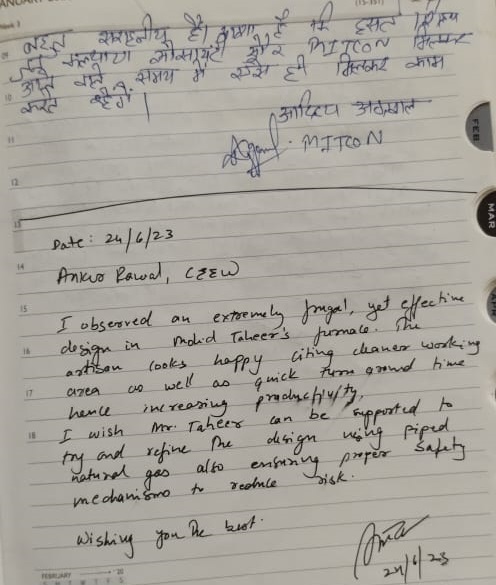 बहुत सराहनीय है। आशा है कि हसल
कल्याण सोसायटी और MITCON मिलकर
आने वाले समय में ऐसे ही मिलकर काम
करते रहेंगे।
आदित्य अग्रवाल
MITCON
Date: 24/6/23
Ankur Rawal, CEEW
I observed an extremely frugal, yet effective
design in Mohd Taheer's furnace. The
artisan looks happy citing cleaner working
area as well as quick turn around time
hence increasing productivity.
I wish Mr. Taheer can be supported to
try and refine the design using piped
natural gas also ensuring proper safety
mechanisms to reduce risk.
Wishing you the best.
24/6/23
JANUARY
09
10
11
12
13
14
15
16
17
18
FEB
MAR
FEBRUARY